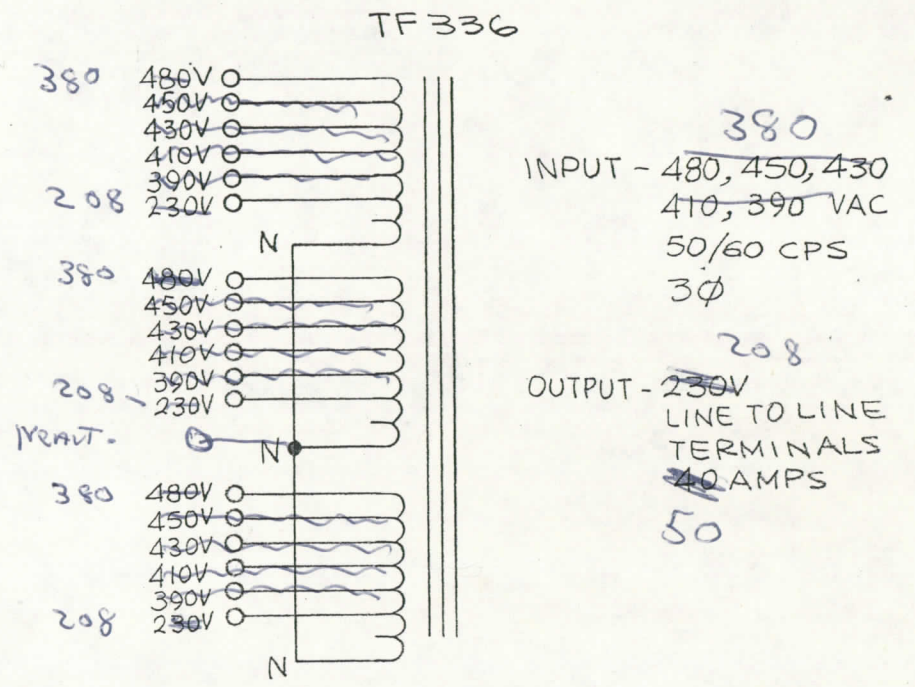 TF 336
380 480V
450V
430V
410V
390V
208 230V
N
380 480V
450V
430V
410V
390V
208 230V
NEAUT- N
380 480V
450V
430V
410V
390V
208 230V
N
380
INPUT - 480, 450, 430
410, 390 VAC
50/60 CPS
3Ø
208
OUTPUT - 230V
LINE TO LINE
TERMINALS
40 AMPS
50